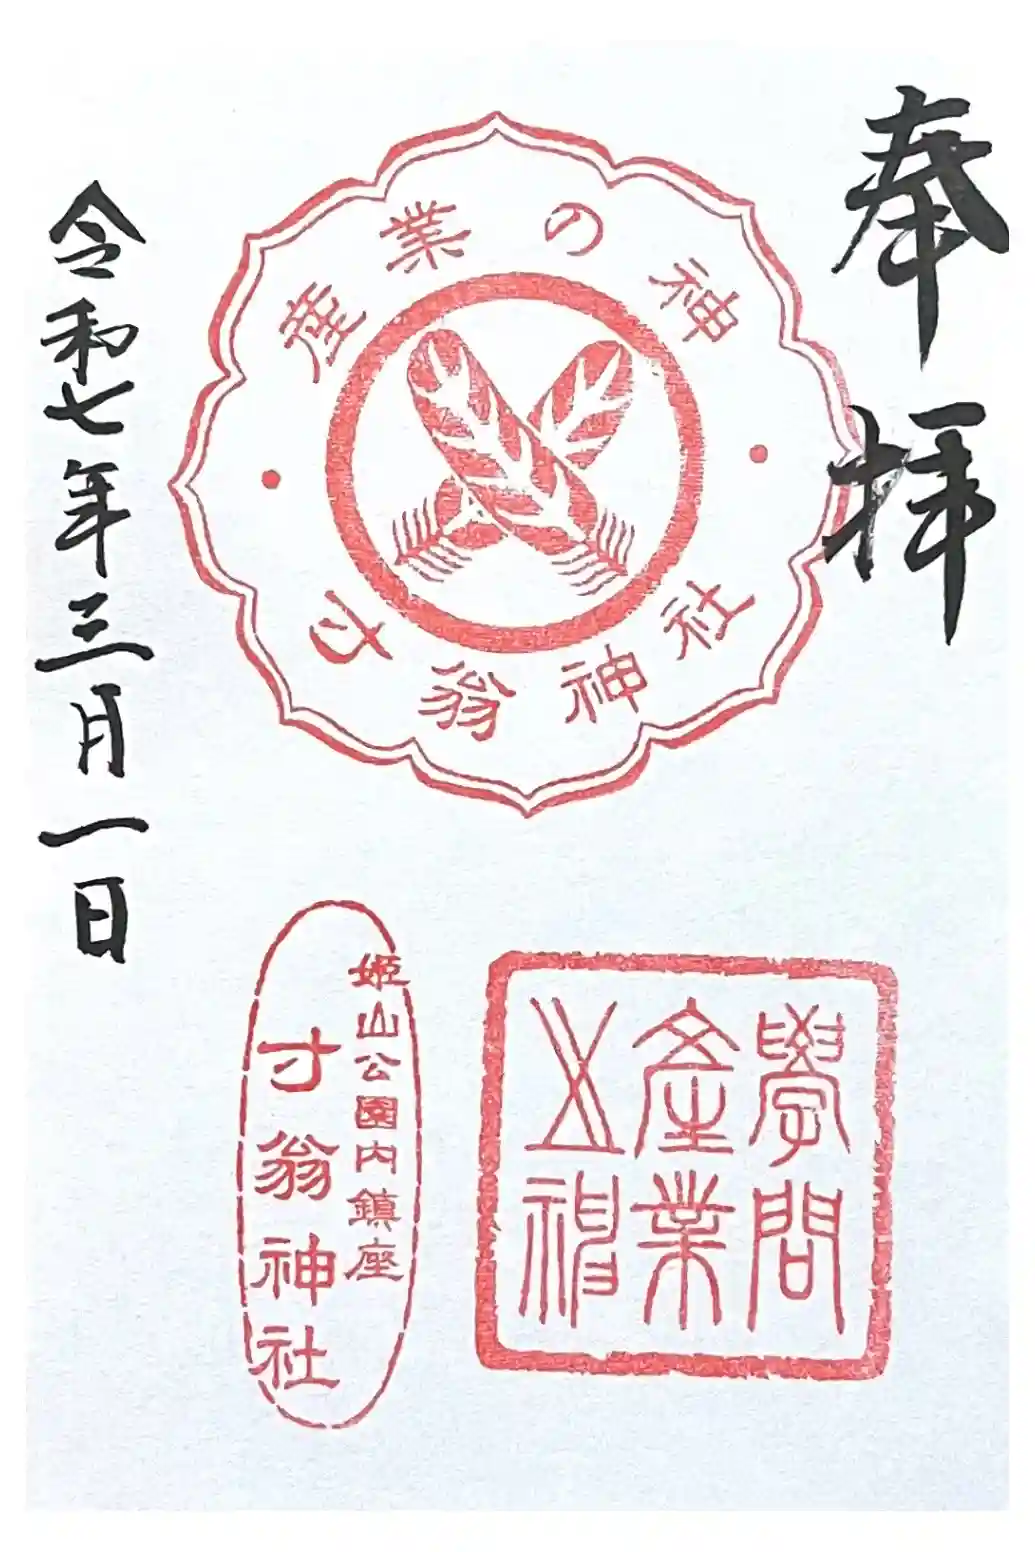 奉拝
産業の神
才翁神社
學問
産業
之神
姫山公園内鎮座
才翁神社
令和七年三月一日